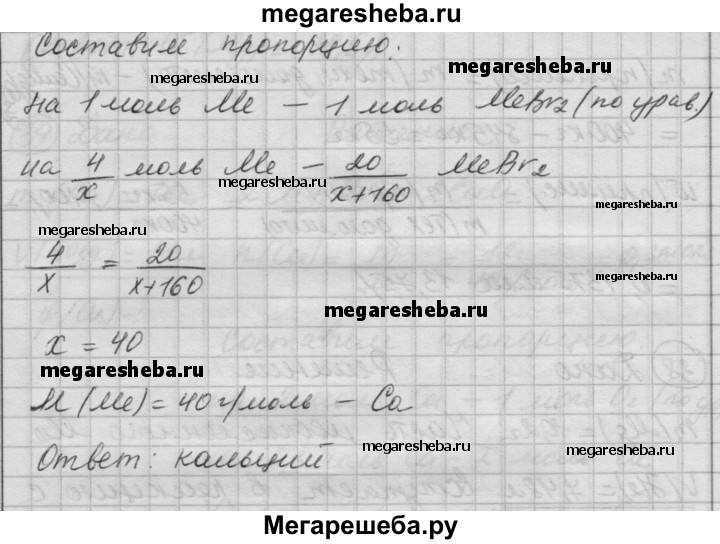 megaresheba.ru
Составим пропорцию:
megaresheba.ru
megaresheba.ru
на 1 моль Me – 1 моль MeBr₂ (по урав.)
на 4/x моль Me – 20/(x+160) MeBr₂
megaresheba.ru
megaresheba.ru
megaresheba.ru
4/x = 20/(x+160)
megaresheba.ru
megaresheba.ru
x = 40
megaresheba.ru
M (Me) = 40 г/моль – Ca
megaresheba.ru
megaresheba.ru
Ответ: кальций
Мегарешеба.ру